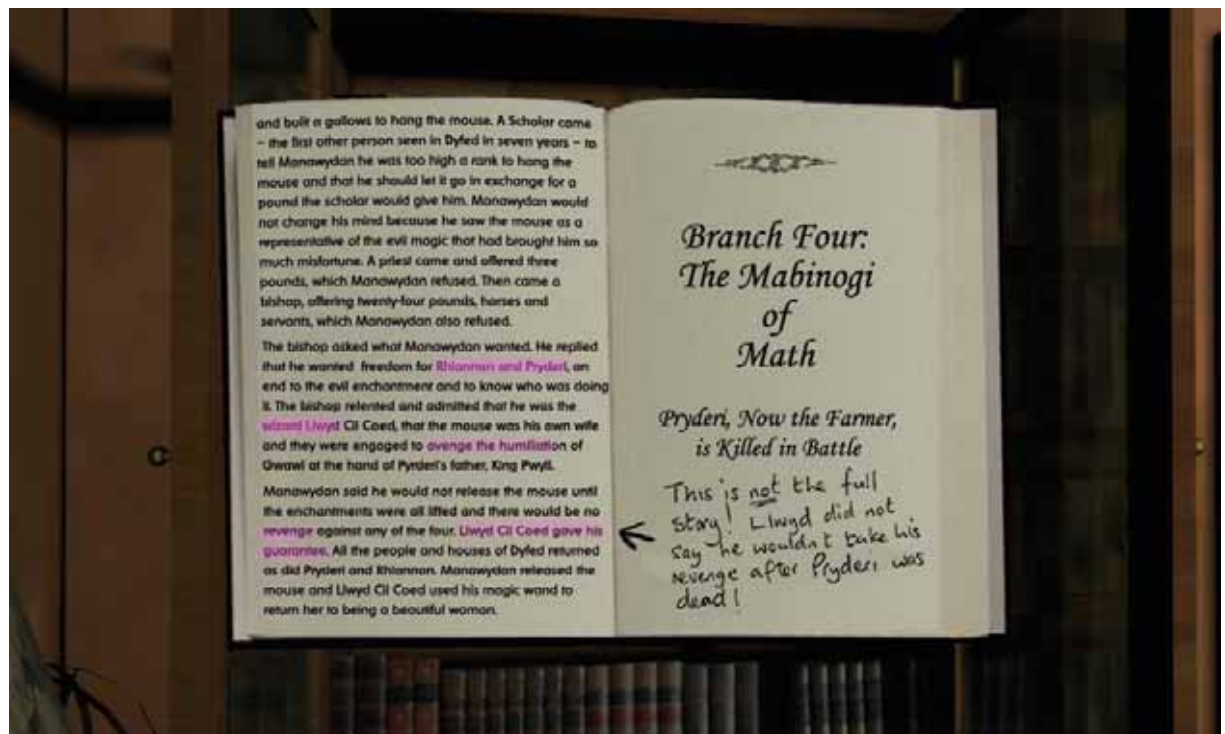 and built a gallows to hang the mouse. A Scholar came
– the first other person seen in Dyfed in seven years – to
tell Manawydan he was too high a rank to hang the
mouse and that he should let it go in exchange for a
pound the scholar would give him. Manawydan would
not change his mind because he saw the mouse as a
representative of the evil magic that had brought him so
much misfortune. A priest came and offered three
pounds, which Manawydan refused. Then came a
bishop, offering twenty-four pounds, horses and
servants, which Manawydan also refused.
The bishop asked what Manawydan wanted. He replied
that he wanted freedom for Rhiannon and Pryderi, an
end to the evil enchantment and to know who was doing
it. The bishop relented and admitted that he was the
wizard Llwyd Cil Coed, that the mouse was his own wife
and they were engaged to avenge the humiliation of
Gwawl at the hand of Pyrderi's father, King Pwyll.
Manawydan said he would not release the mouse until
the enchantments were all lifted and there would be no
revenge against any of the four. Llwyd Cil Coed gave his
guarantee. All the people and houses of Dyfed returned
as did Pryderi and Rhiannon. Manawydan released the
mouse and Llwyd Cil Coed used his magic wand to
return her to being a beautiful woman.
Branch Four:
The Mabinogi
of
Math
Pryderi, Now the Farmer,
is Killed in Battle
This is not the full
story! Llwyd did not
say he wouldn't take his
revenge after Pryderi was
dead!